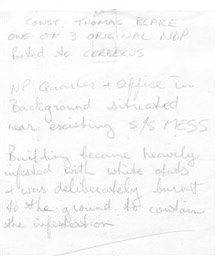 CONST. THOMAS BLAKE
ONE OF 3 ORIGINAL NDP
Posted to CERBERUS
NP Quarters + Office in
Background situated
near existing S/S MESS
Building became heavily
infested with white ants
+ was deliberately burnt
to the ground to contain
the infestation